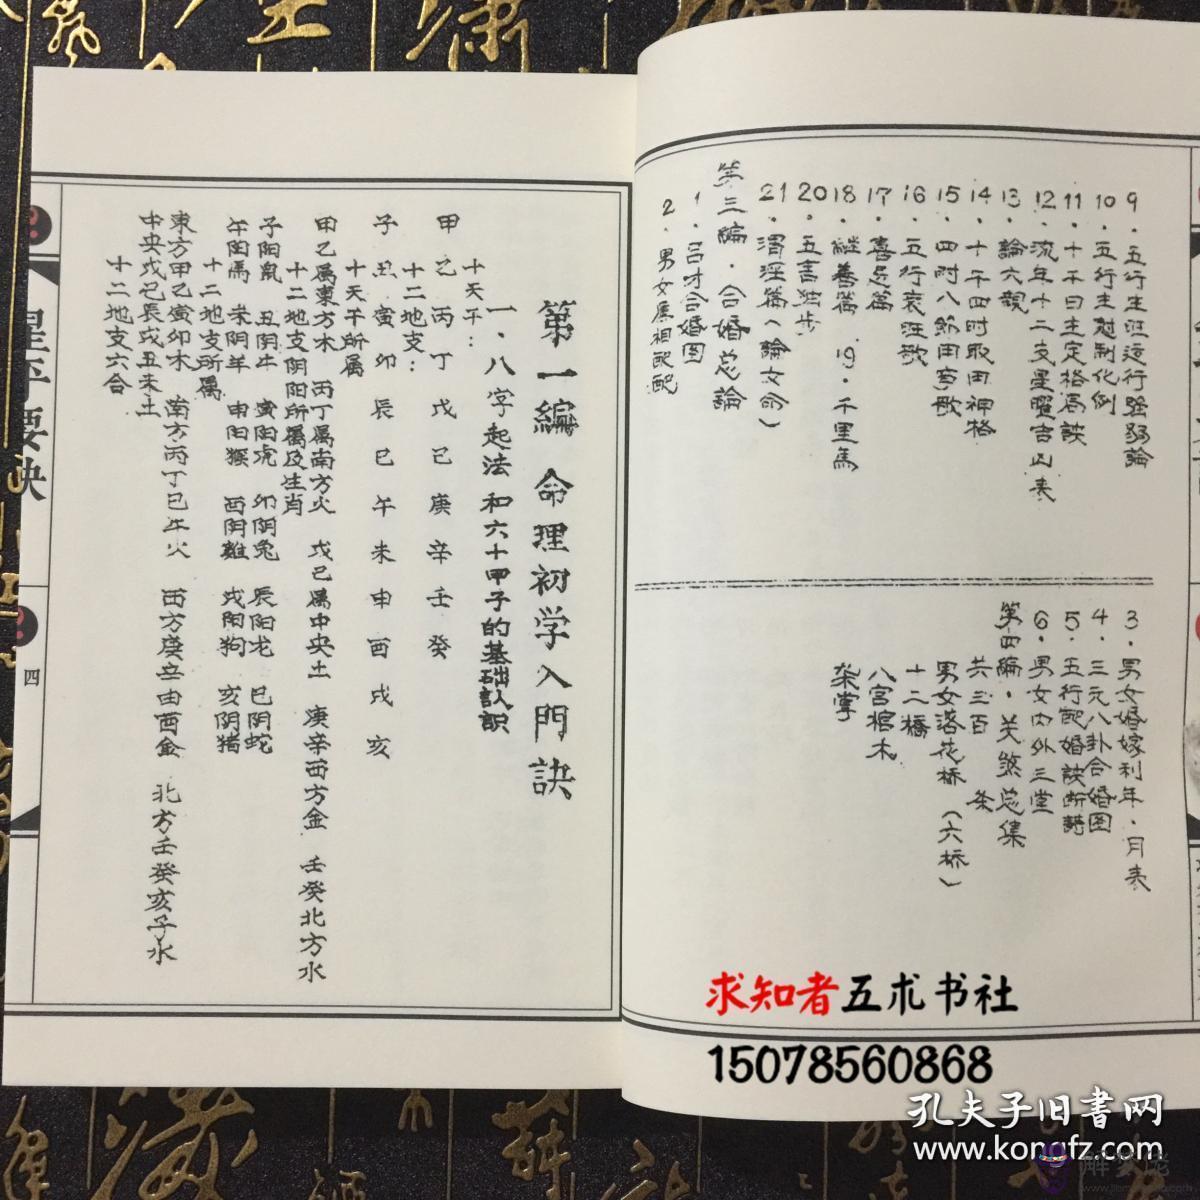 9. 五行生旺运行强弱論
10. 五行生尅制化例
11. 十干日主定格局訣
12. 流年十二支星曜吉凶表
13. 論六親
14. 十干四时取用神格
15. 四时八節用事歌
16. 五行衰旺歌
17. 喜忌篇
18. 継善篇 19. 千里馬
20. 五言独步
21. 渭泾篇（論女命）
第三編. 合婚总論
1. 吕才合婚图
2. 男女属相配配
3. 男女婚嫁利年、月表
4. 三元八卦合婚图
5. 五行配婚訣断語
6. 男女内外三堂
第四編. 关煞总集
共三百 条
男女落花桥（六桥）
十二橋
八宫棺木
第一編 命理初学入門訣
一、八字起法和六十甲子的基础认识
十天干：
甲乙丙丁戊己庚辛壬癸
十二地支：
子丑寅卯辰巳午未申酉戌亥
十天干所属
甲乙属東方木 丙丁属南方火 戊己属中央土 庚辛西方金 壬癸北方水
十二地支阴阳所属及生肖
子阳鼠 丑阴牛 寅阳虎 卯阴兔 辰阳龙 巳阴蛇
午阳馬 未阴羊 申阳猴 酉阴雞 戌阳狗 亥阴猪
十二地支所属
東方甲乙寅卯木 南方丙丁巳午火 西方庚辛申酉金 北方壬癸亥子水
中央戊己辰戌丑未土
十二地支六合
星平要訣
四
求知者五术书社
15078560868
孔夫子旧書网
www.kongfz.com
解夢佬